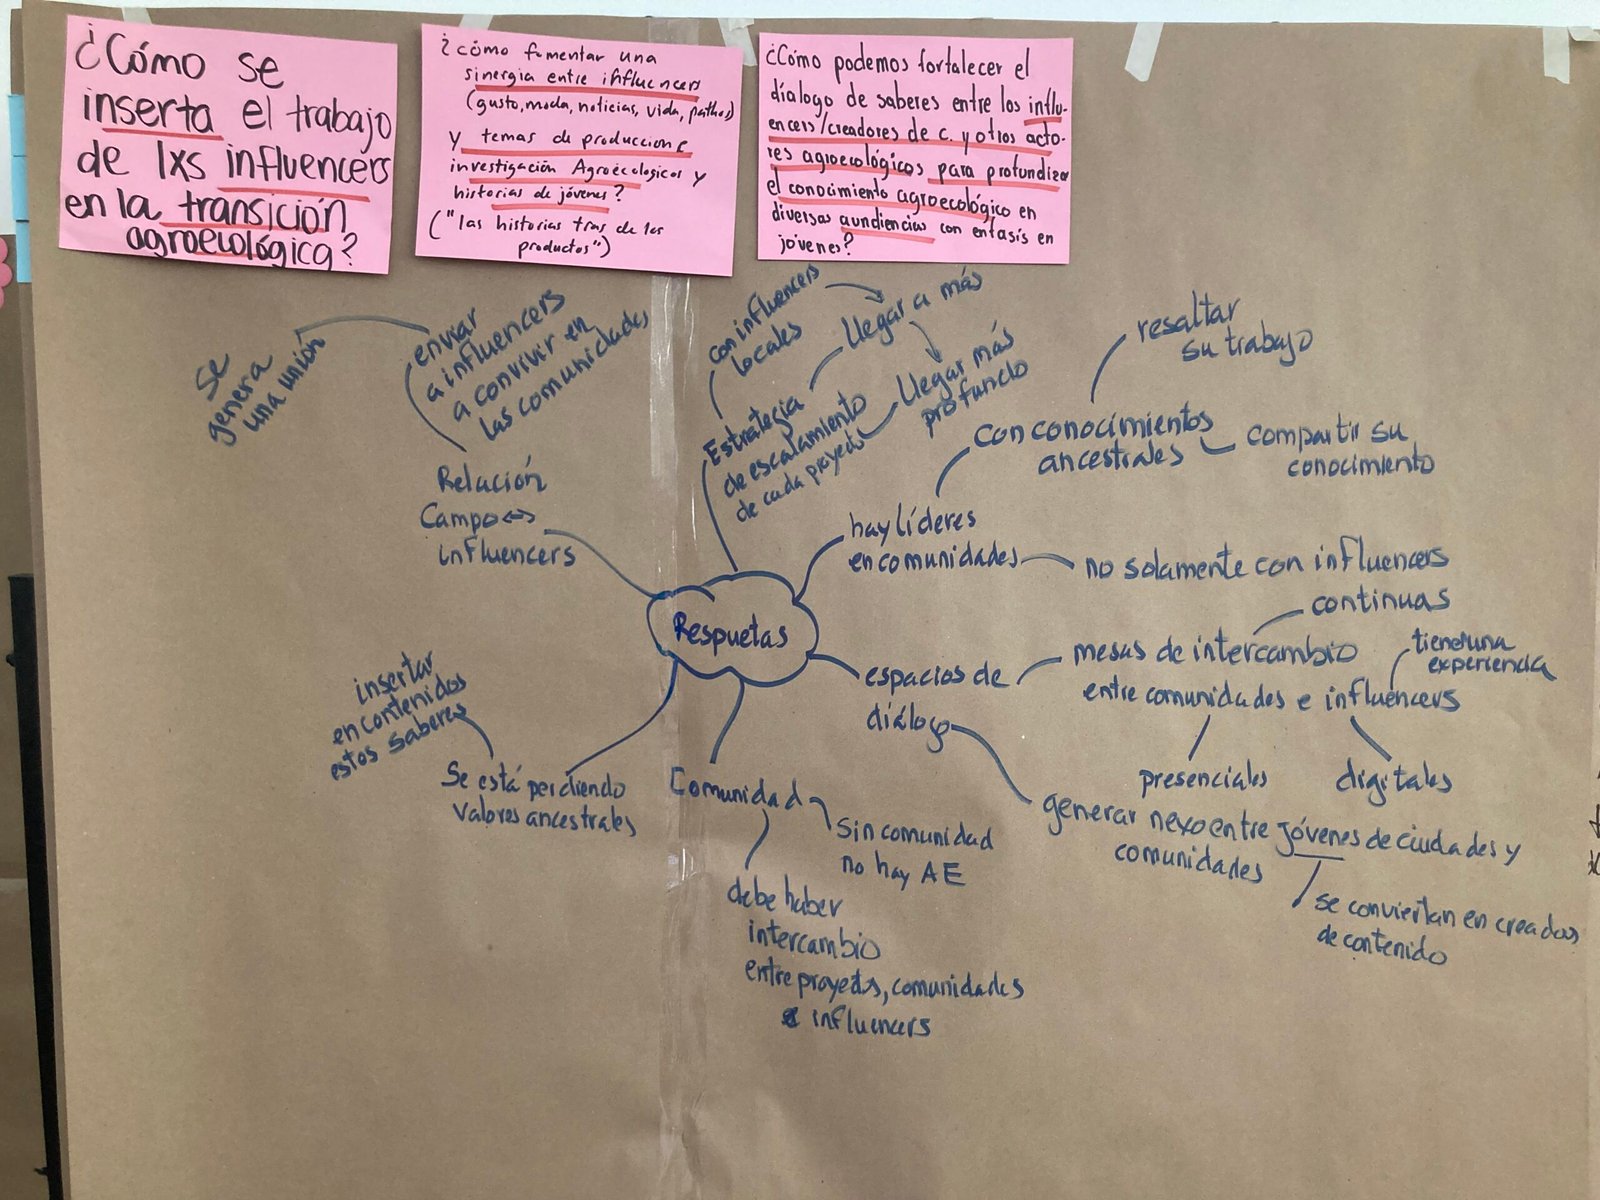 ¿Cómo se
inserta el trabajo
de lxs influencers
en la transición
agroecológica?
¿cómo fomentar una
sinergia entre influencers
(gusto, moda, noticias, vida, pathos)
y temas de producción e
investigación Agroecologicos y
historias de jóvenes?
("las historias tras de los
productos")
¿Cómo podemos fortalecer el
díalogo de saberes entre los influ-
encers/creadores de c. y otros acto-
res agroecológicos para profundizar
el conocimiento agroecológico en
diversas aundiencias con entasís en
jóvenes?
Se
genera
una unión
enviar
a influencers
a convivir en
las comunidades
Relación
Campo <-->
influencers
con influencers
locales
llegar a más
llegar más
profundo
Estrategia
de escalamiento
de cada proyecto
resaltar
su trabajo
con conocimientos
ancestrales
compartir su
conocimiento
hay líderes
en comunidades
no solamente con influencers
Respuetas
espacios de
diálogo
continuas
mesas de intercambio
entre comunidades e influencers
tienen una
experiencia
presenciales
digitales
generar nexo entre jóvenes de ciudades y
comunidades
se conviertan en creadores
de contenido
insertar
en contenidos
estos saberes
Se está perdiendo
valores ancestrales
Comunidad
Sin comunidad
no hay AE
debe haber
intercambio
entre proyectos, comunidades
e influencers